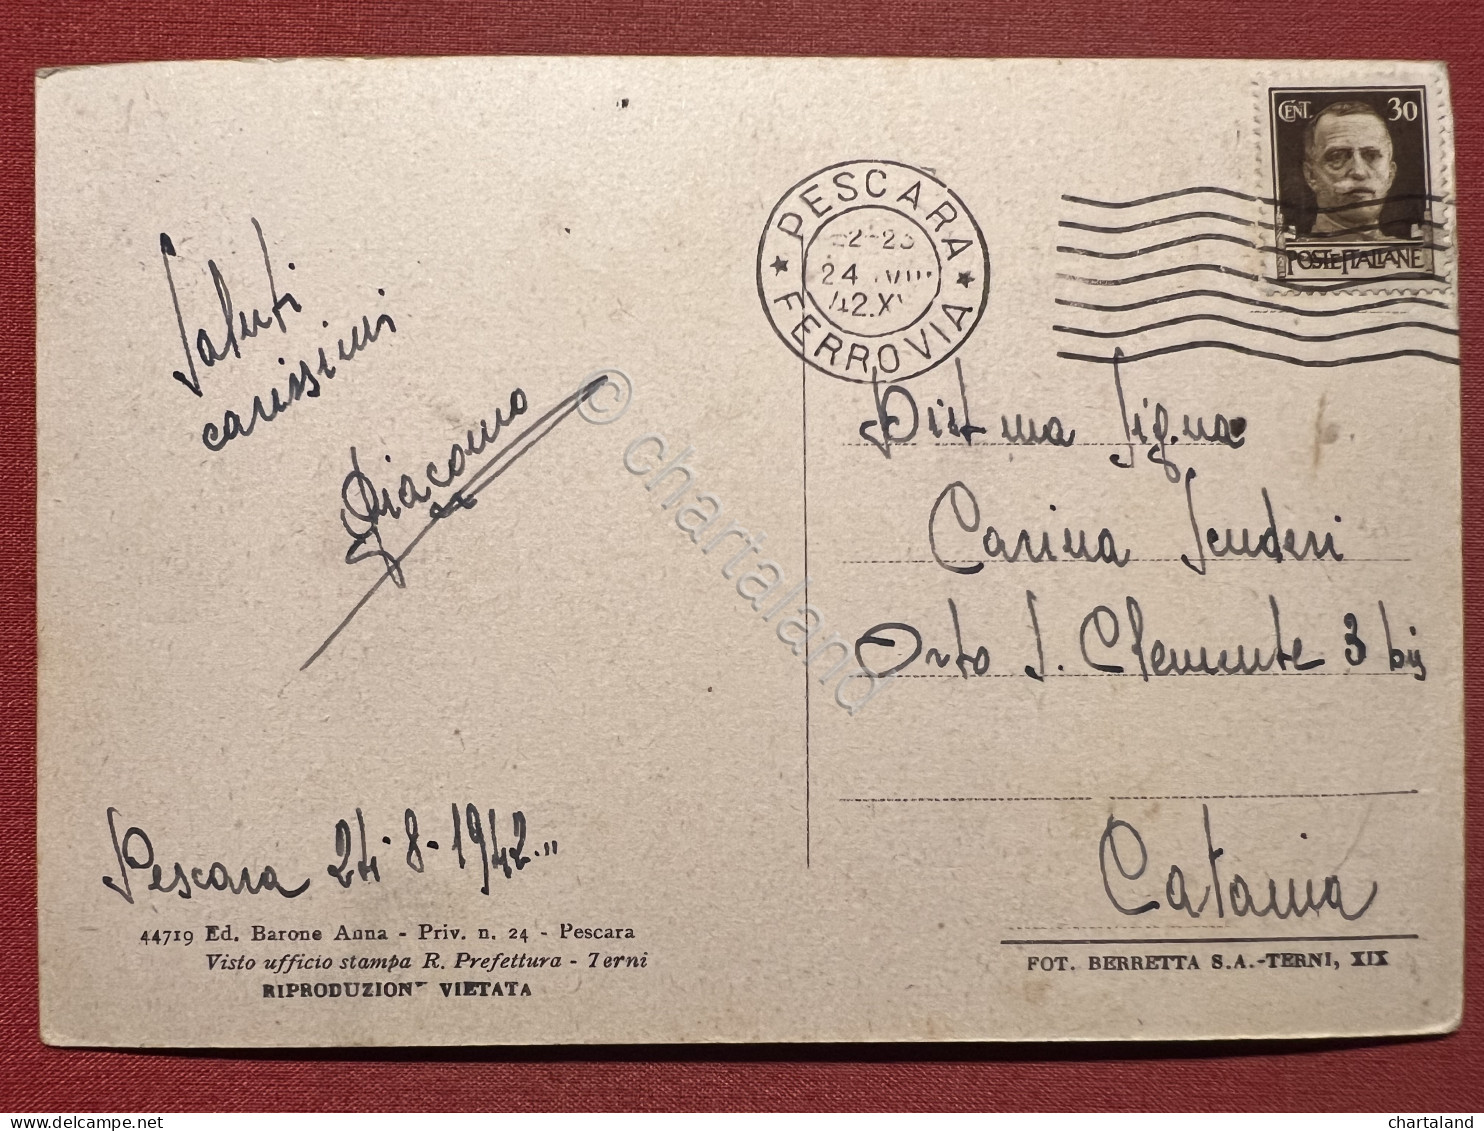 CENT. 30
POSTE ITALIANE
PESCARA
24 VIII
42.X
FERROVIA
Saluti
carissimi
Giacomo
Dist.ma Sig.na
Carina Scuderi
Orto S. Clemente 3 bis
Catania
Pescara 24-8-1942
44719 Ed. Barone Anna - Priv. n. 24 - Pescara
Visto ufficio stampa R. Prefettura - Terni
RIPRODUZIONE VIETATA
FOT. BERRETTA S.A.-TERNI, XIX
© chartaland
delcampe.net
chartaland